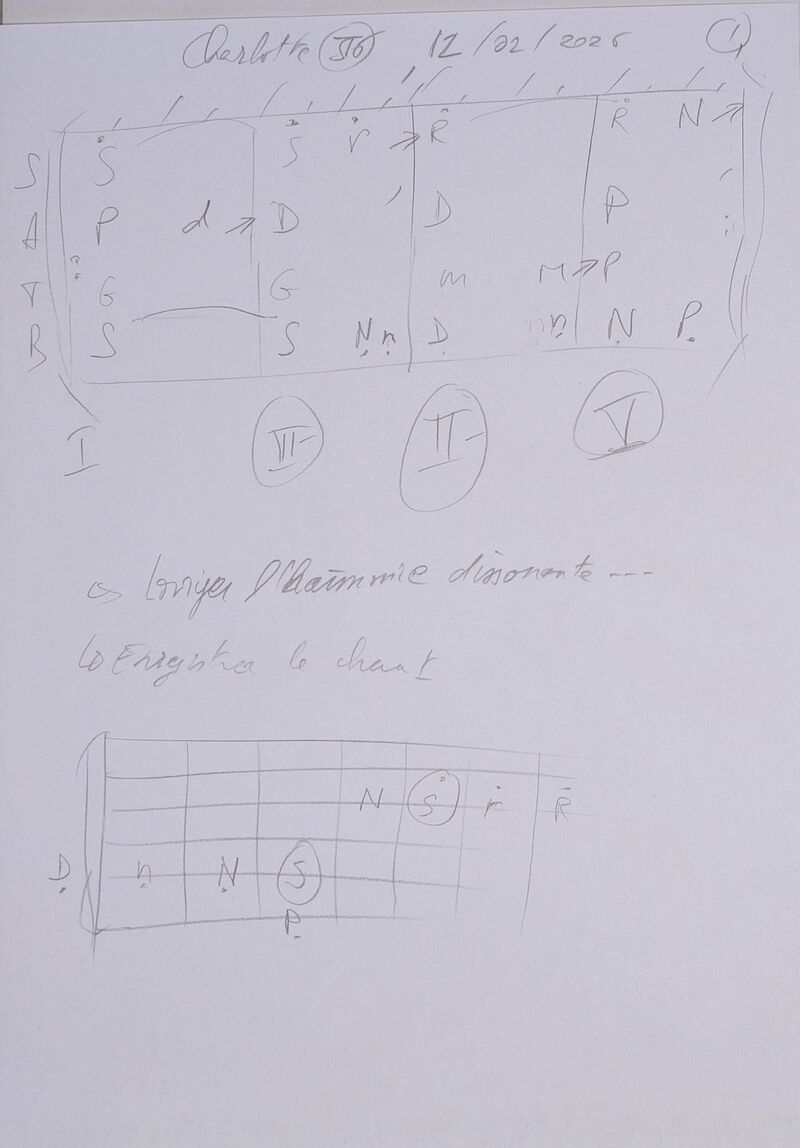 Charlotte 12/02/2026 1
S Ṡ Ṡ ṙ → Ṙ Ṙ N →
A P d → D D P
T G G m M → P
B S S Ṇ ṇ Ḍ ṇ Ṇ P̣
I VI II V
l'harmonie dissonante ---
↳ Enregistrer le chant
N Ṡ ṙ Ṙ
Ḍ ṇ Ṇ S
P̣